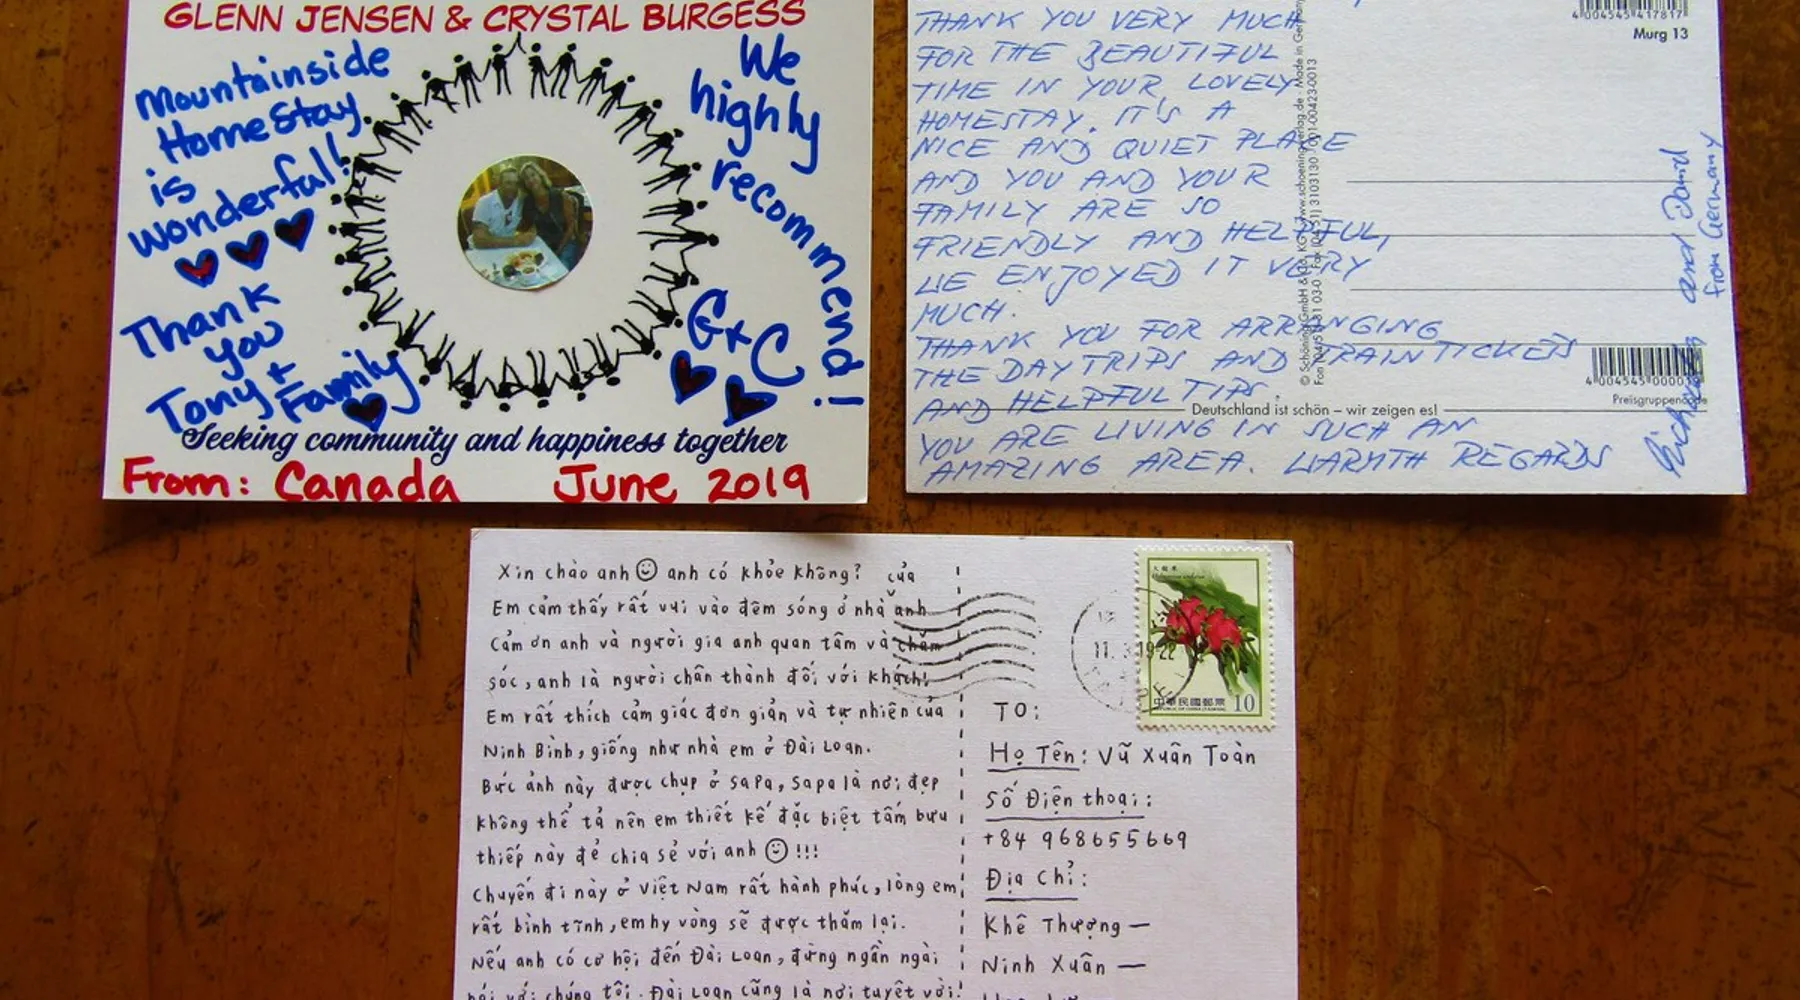 GLENN JENSEN & CRYSTAL BURGESS
Mountainside
HomeStay
is
wonderful!
Thank
you
Tony +
Family
We
highly
recommend!
G+C
Seeking community and happiness together
From: Canada June 2019
THANK YOU VERY MUCH
FOR THE BEAUTIFUL
TIME IN YOUR LOVELY
HOMESTAY. IT'S A
NICE AND QUIET PLACE
AND YOU AND YOUR
FAMILY ARE SO
FRIENDLY AND HELPFUL,
WE ENJOYED IT VERY
MUCH.
THANK YOU FOR ARRANGING
THE DAYTRIPS AND TRAINTICKETS
AND HELPFUL TIPS.
YOU ARE LIVING IN SUCH AN
AMAZING AREA. WARMTH REGARDS
and David
from Germany
4 004545 417817
Murg 13
Deutschland ist schön – wir zeigen es!
Preisgruppencode
Xin chào anh☺ anh có khỏe không?
Em cảm thấy rất vui vào đêm sóng ở nhà của anh
Cảm ơn anh và người gia anh quan tâm và chăm
sóc, anh là người chân thành đối với khách!
Em rất thích cảm giác đơn giản và tự nhiên của
Ninh Bình, giống như nhà em ở Đài Loan.
Bức ảnh này được chụp ở SaPa, Sapa là nơi đẹp
không thể tả nên em thiết kế đặc biệt tấm bưu
thiếp này để chia sẻ với anh ☺!!!
Chuyến đi này ở Việt Nam rất hành phúc, lòng em
rất bình tĩnh, em hy vòng sẽ được thăm lại.
Nếu anh có cơ hội đến Đài Loan, đừng ngần ngài
nói với chúng tôi. Đài Loan cũng là nơi tuyệt vời!
中華民國郵票 10
TO:
Họ Tên: Vũ Xuân Toàn
Số Điện thoại:
+84 968655669
Địa chỉ:
Khê Thượng —
Ninh Xuân —